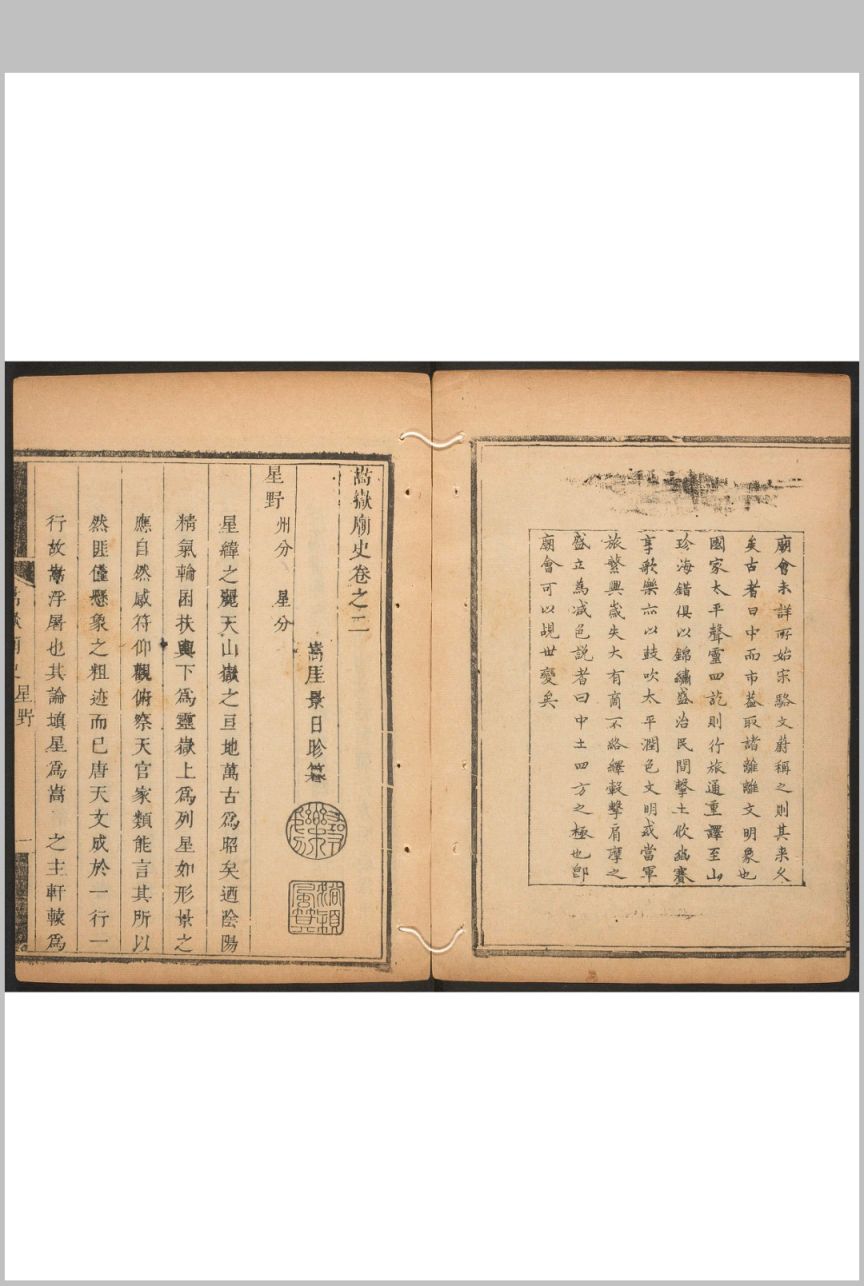 廟會未詳所始宋駱文蔚稱之則其来久
矣古者日中而市蓋取諸離離文明象也
國家太平聲靈四訖則行旅通重譯至山
珍海錯俱以錦繡盛治民間擊土欱豳賽
享歌樂亦以鼓吹太平潤色文明或當軍
旅繁興歲失大有商不絡繹轂擊肩摩之
盛立為减色説者曰中土四方之極也卽
廟會可以覘世變矣
嵩嶽廟史卷之二
嵩厓景日昣纂
星野 州分 星分
星緯之麗天山嶽之亘地萬古爲昭矣迺陰陽
精氣輪囷扶輿下爲靈嶽上爲列星如形景之
應自然感符仰觀俯察天官家類能言其所以
然匪僅懸象之粗迹而已唐天文成於一行一
行故嵩浮屠也其論塡星爲嵩 之主軒轅爲
星野
一